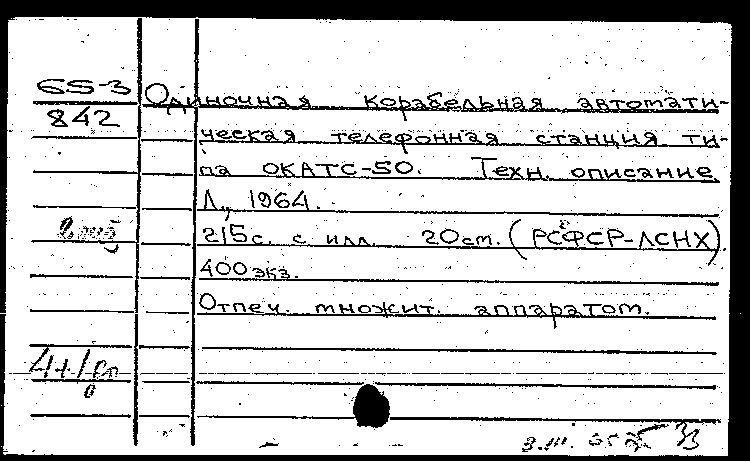 65-3
842
Одиночная корабельная автомати-
ческая телефонная станция ти-
па ОКАТС-50. Техн. описание
Л., 1964.
215с. с илл. 20см. (РСФСР-ЛСНХ).
400 экз.
Отпеч. множит. аппаратом.
4+1
3.III. 65